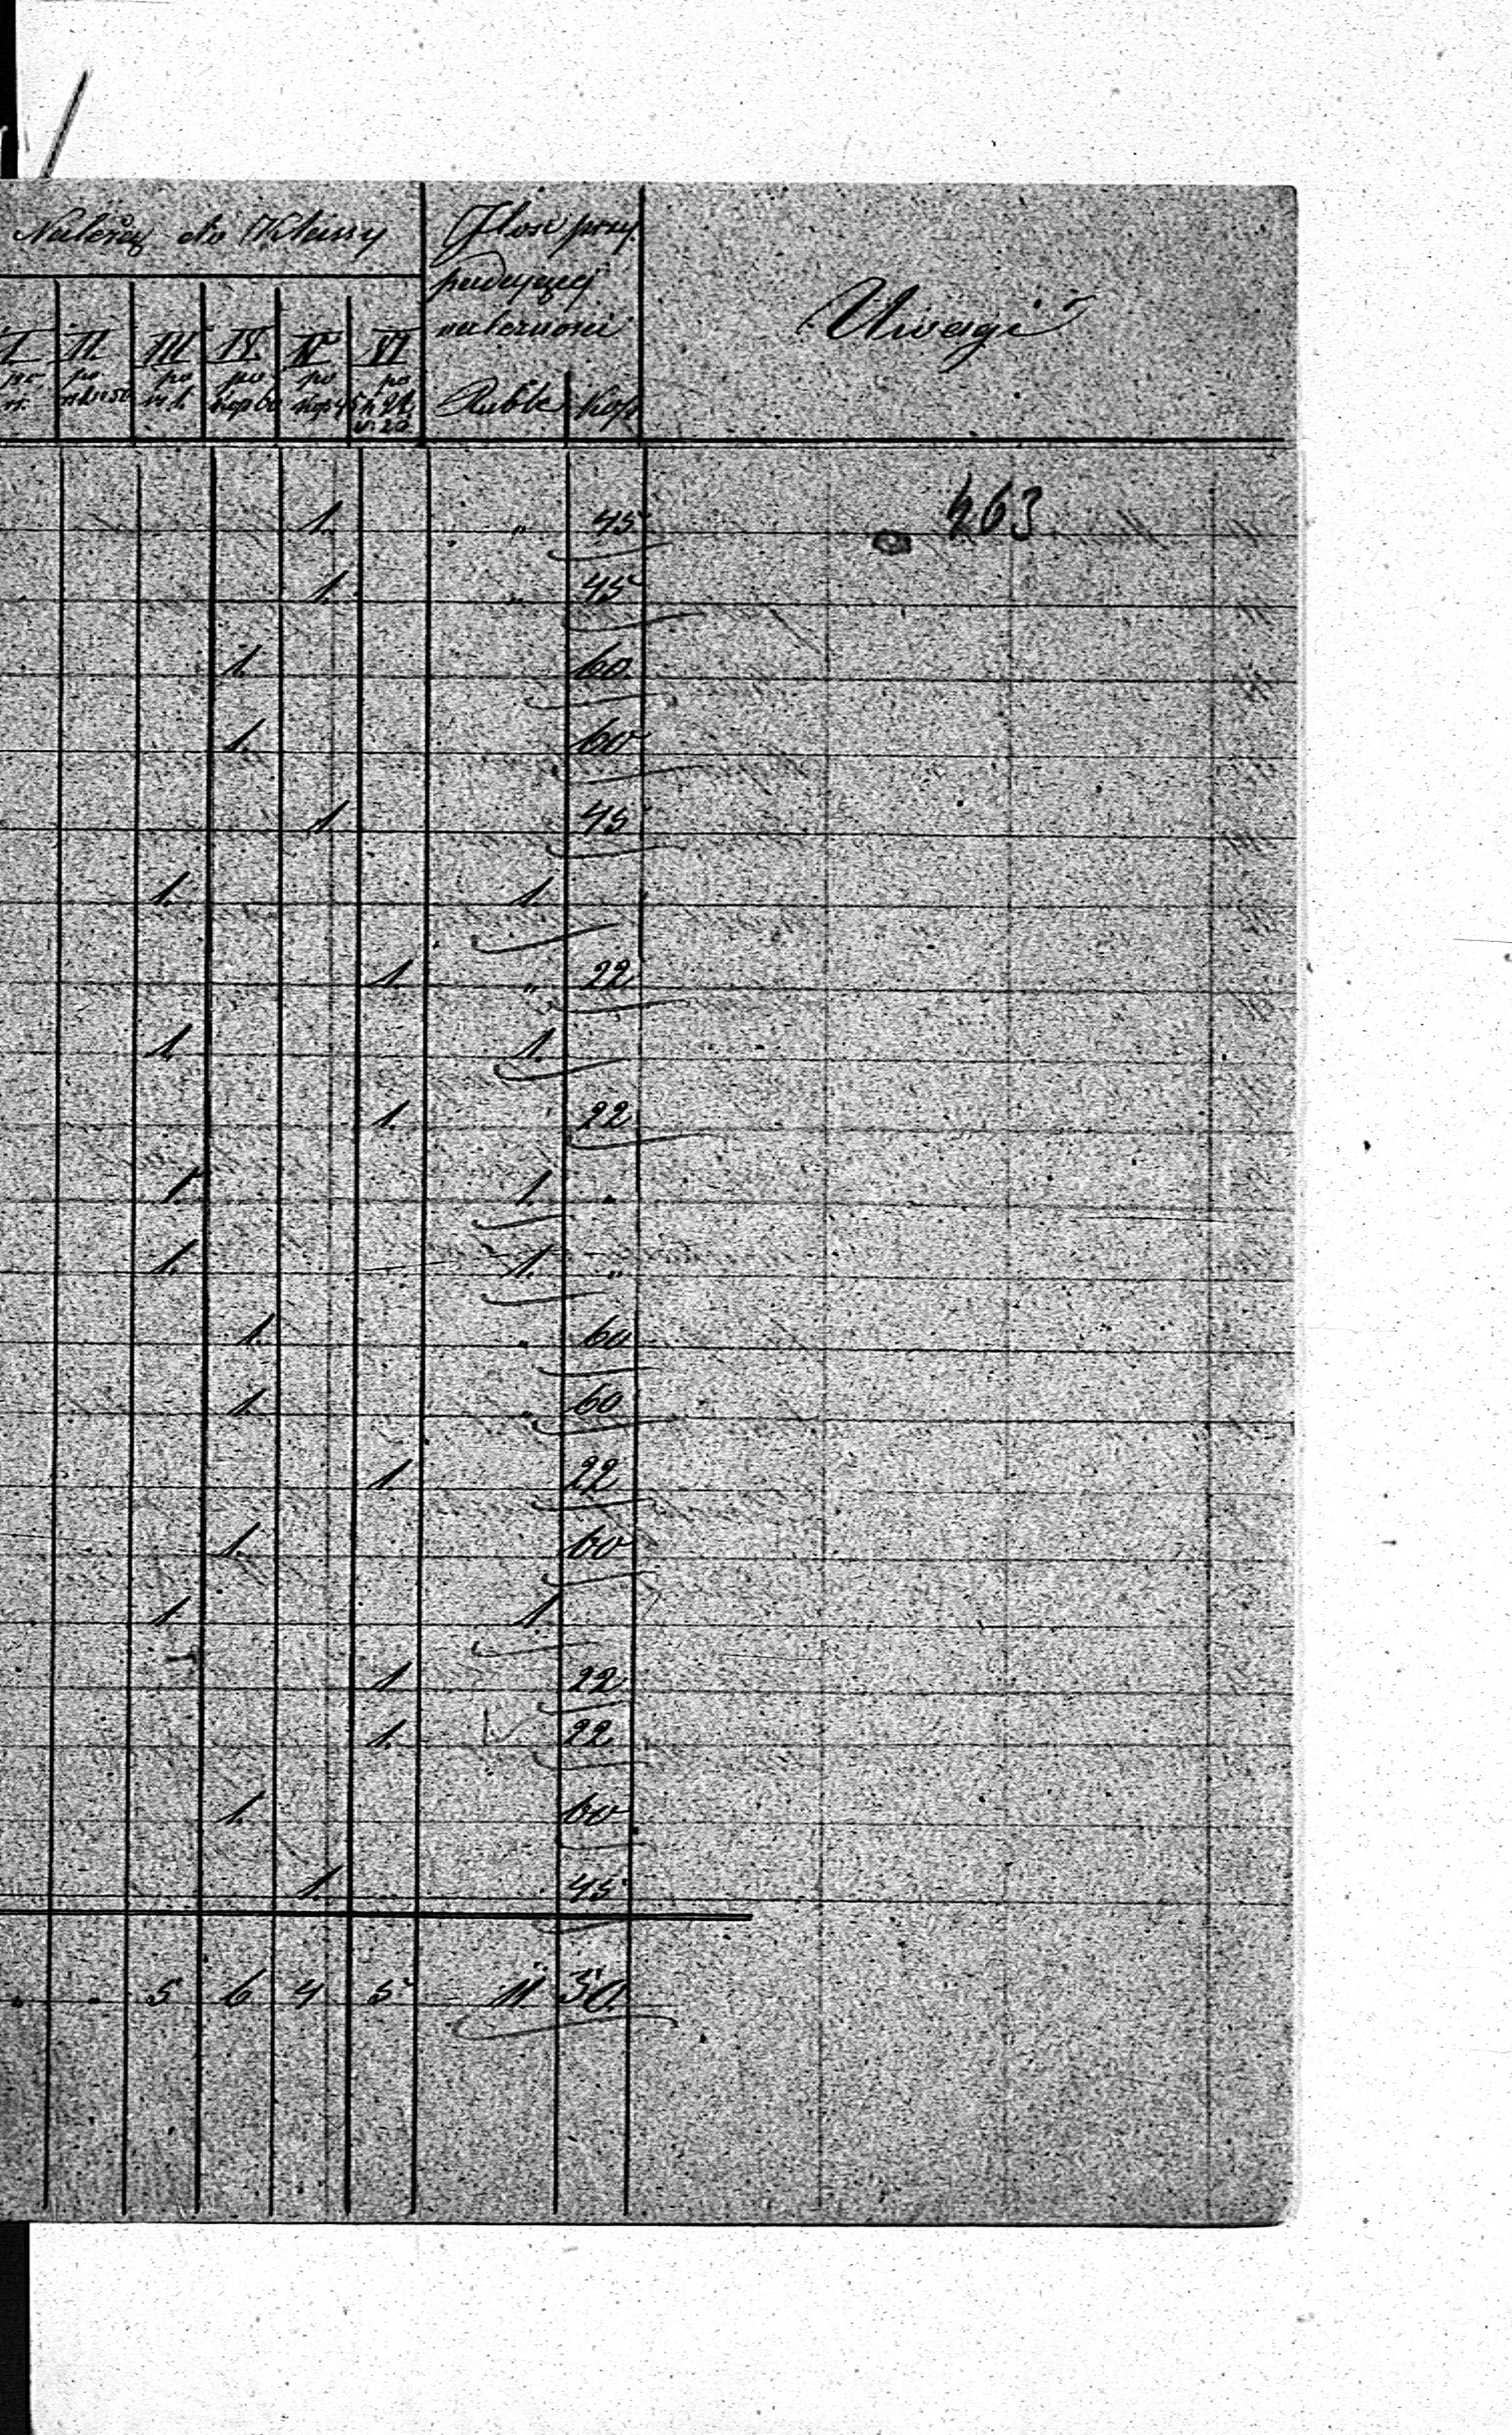 Należy do Klassy
Ilość przy
padającej
należności
Uwagi
I II. III IV. V VI
po po po po po
rs. rs 1 k 50 rs 1. kop 60 kop 45 k 22
Ruble Kop
463
1. " 45
1. " 45
1. 60
1. 60
1 45
1. 1.
1. " 22
1. 1.
1. 22
1. 1. "
1. 1. "
1. " 60
1. " 60
1. 22
1. 60
1. 1.
1. 22
1. 22
1. 60
1. 45
" " 5 6 4 5 11 50